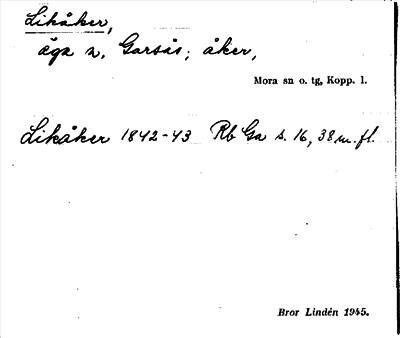 Likåker,
äga n. Garsås; åker,
Mora sn o. tg, Kopp. l.
Likåker 1842-43 Rb Ga s. 16, 38 m. fl.
Bror Lindén 1945.